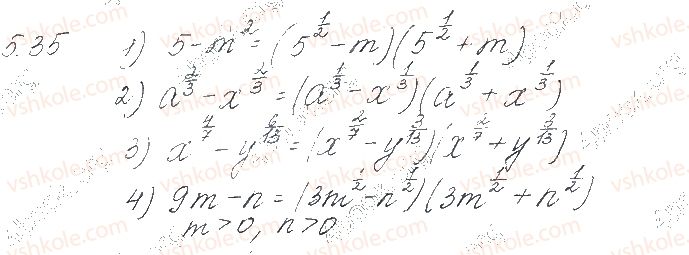 5.35 1) 5-m² = (5^{1/2} - m)(5^{1/2} + m)
2) a^{2/3} - x^{2/3} = (a^{1/3} - x^{1/3})(a^{1/3} + x^{1/3})
3) x^{4/7} - y^{6/13} = (x^{2/7} - y^{3/13})(x^{2/7} + y^{3/13})
4) 9m - n = (3m^{1/2} - n^{1/2})(3m^{1/2} + n^{1/2})
m > 0, n > 0
vshkole.com